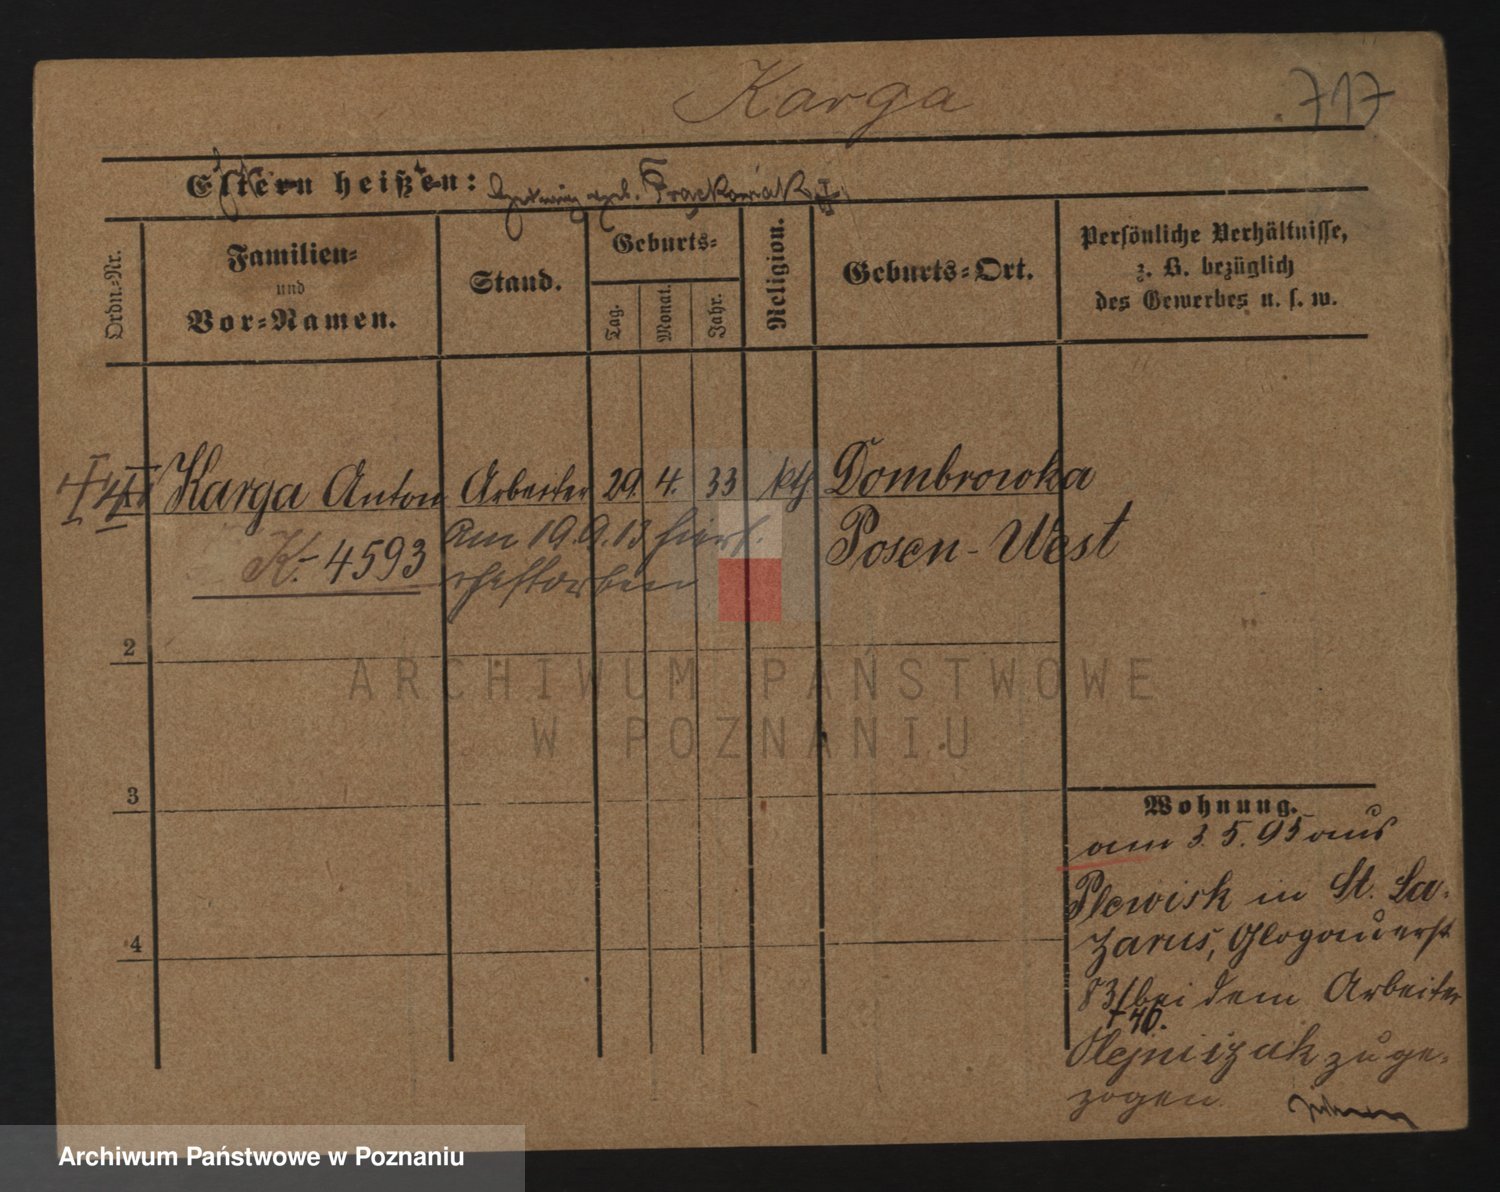 Karga
717
Eltern heißen:
geb. Frąckowiak
Ordn.-Nr.
Familien-
und
Vor-Namen.
Stand.
Geburts-
Tag.
Monat.
Jahr.
Religion.
Geburts-Ort.
Persönliche Verhältnisse,
z. B. bezüglich
des Gewerbes u. s. w.
Karga Anton Arbeiter 29. 4. 33 kth Dombrowka
K. 4593
Am 19.9.13 hier
Posen-West
2
3
4
Wohnung.
am 3. 5. 95 aus
Plewisk in St. La-
zarus, Glogauerst
83/ bei dem Arbeiter
Olejniczak zuge-
zogen
ARCHIWUM PAŃSTWOWE
W POZNANIU
Archiwum Państwowe w Poznaniu